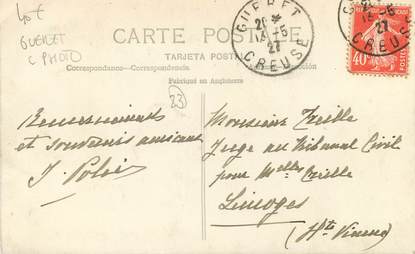 40€
GUERET
C PHOTO
CARTE POSTALE
TARJETA POSTAL
Correspondance-Correspondencia
Fabriqué en Angleterre
GUERET
CREUSE
27
40c
CREUSE
27
23
Remerciements
et souvenirs amicaux
J.
Monsieur
Juge au Tribunal Civil
pour Melles
Limoges
(Hte Vienne)